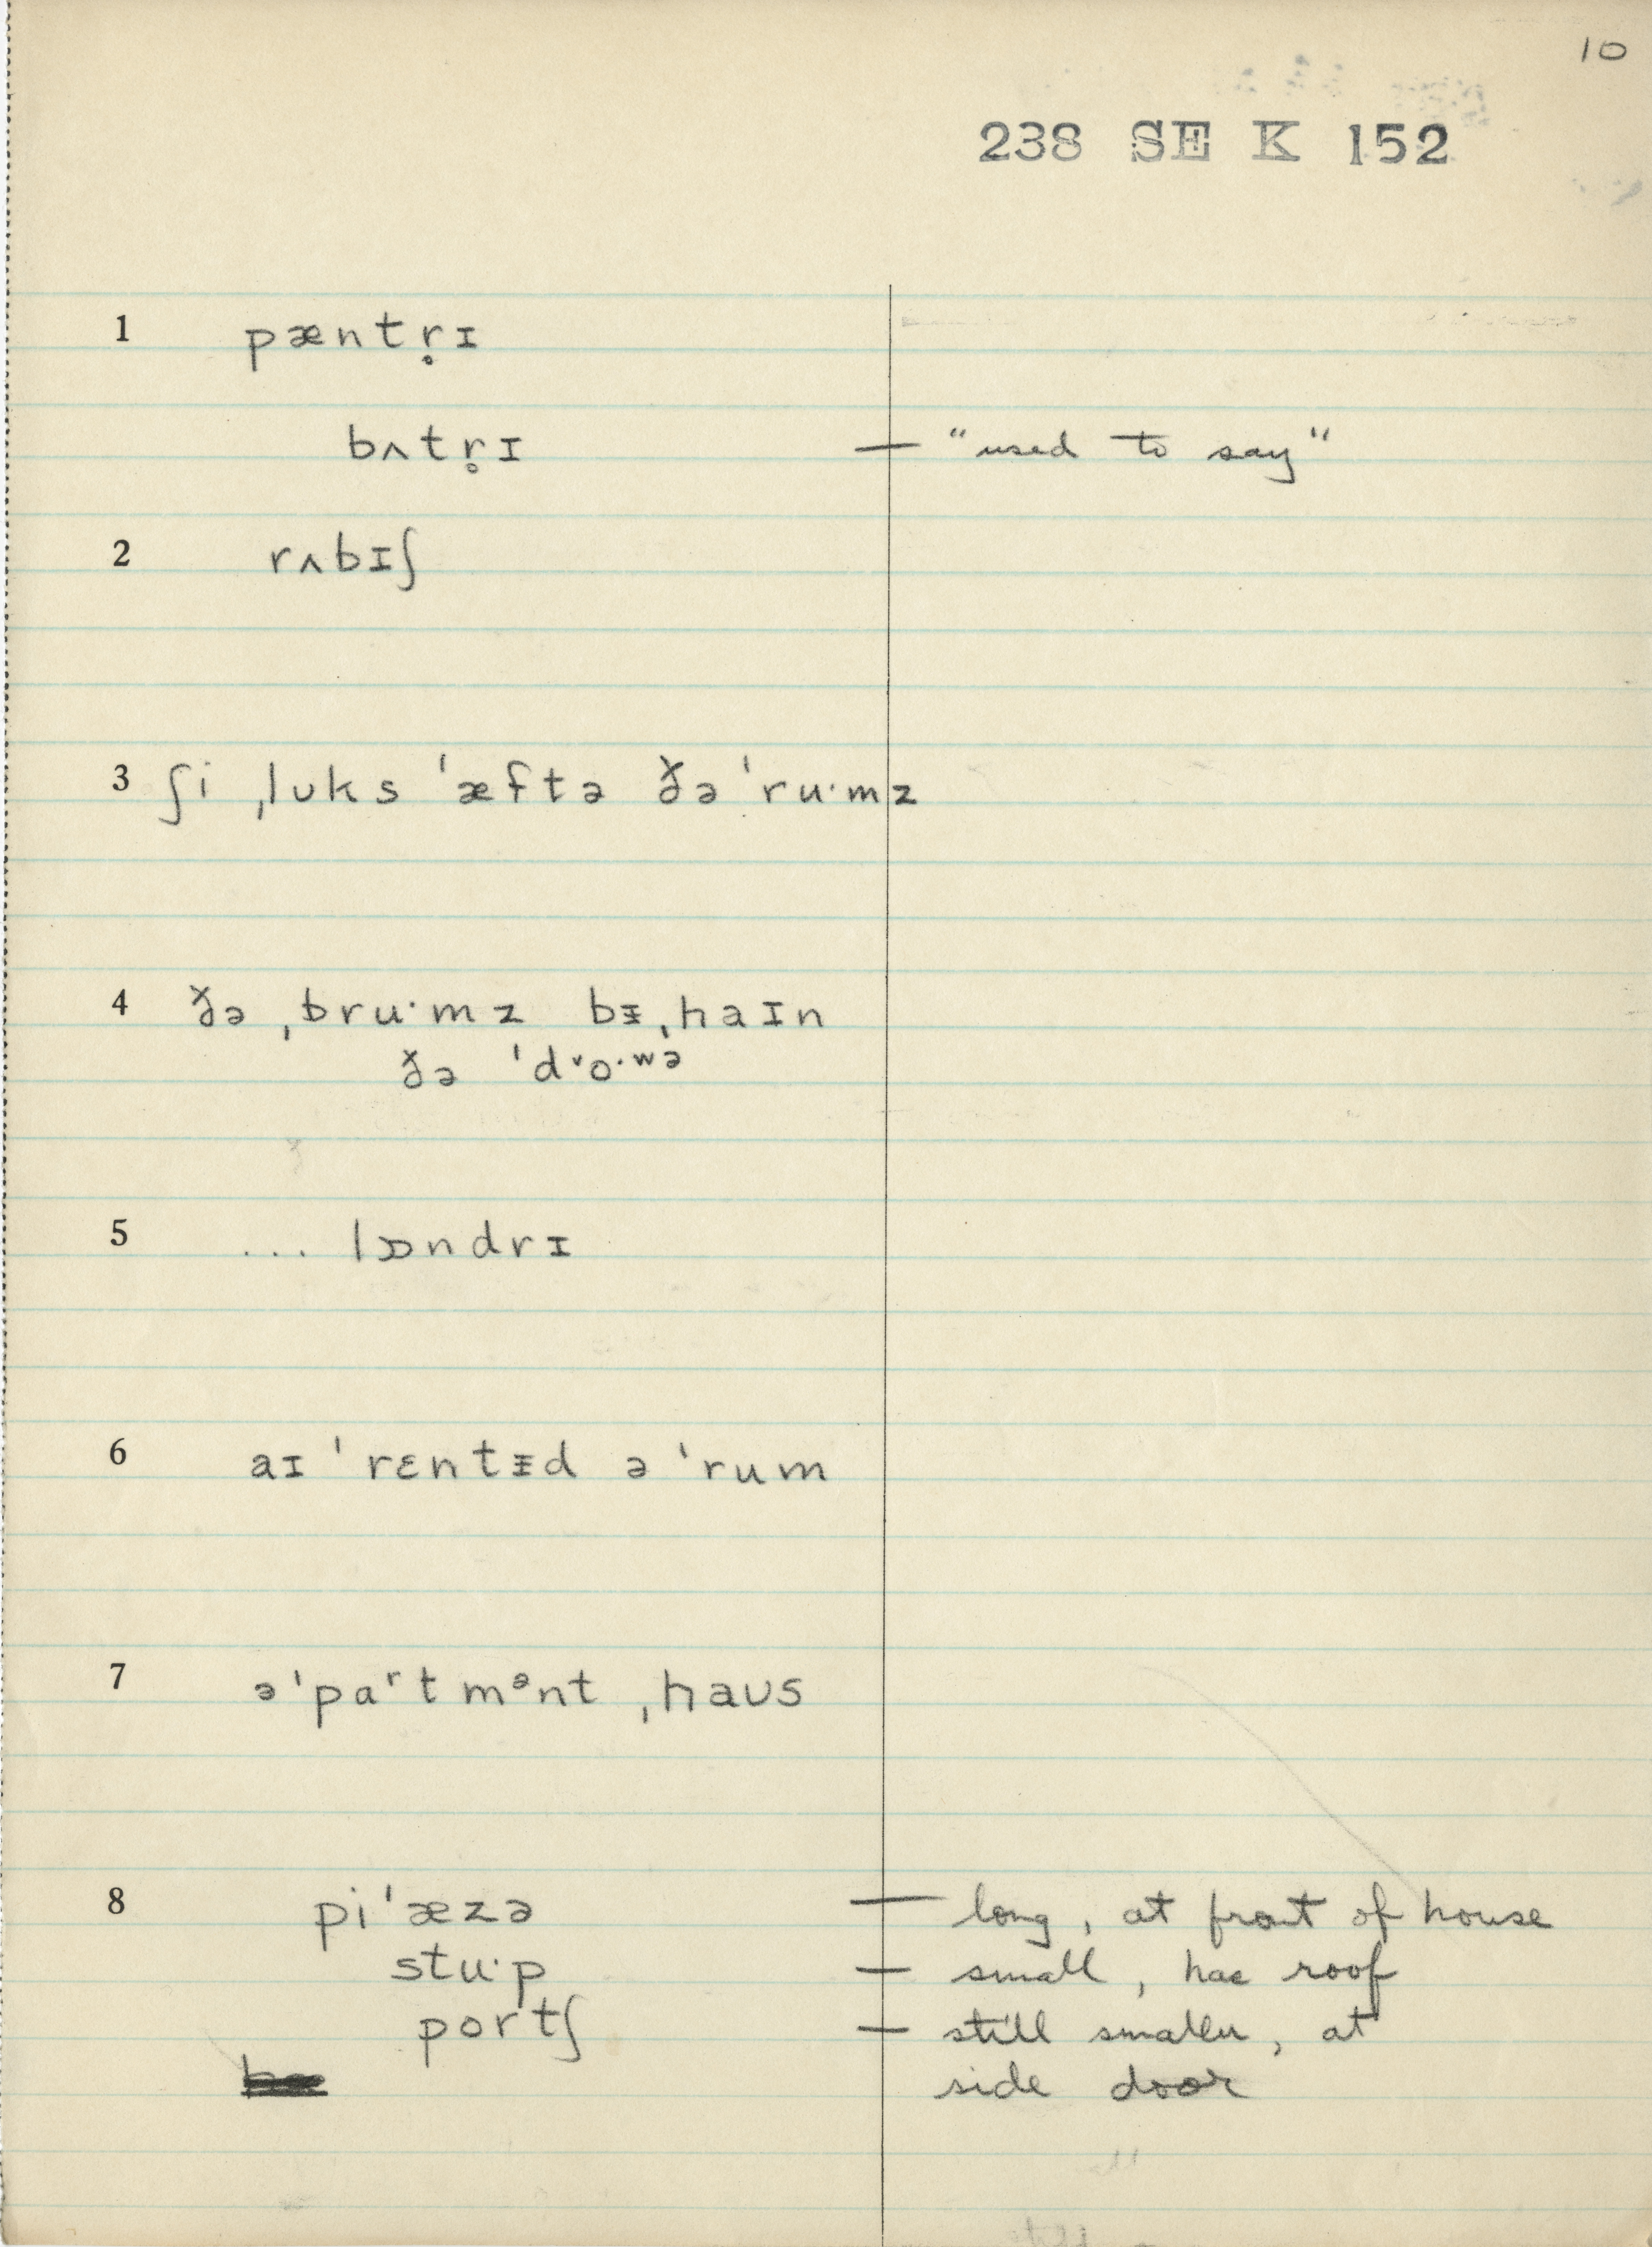 10
238 SE K 152
1 pæntr̥ɪ
bʌtr̥ɪ — "used to say"
2 rʌbɪʃ
3 ʃi ˌlʊks ˈæftə ðə ˈruˑmz
4 ðə ˌbruˑmz bᵻˌhaɪn
ðə ˈd˅oˑʷᵊ
5 ... lɒndrɪ
6 aɪ ˈrɛntᵻd ə ˈrum
7 əˈpaʳtmᵊnt ˌhaʊs
8 piˈæzə — long, at front of house
stuˑp — small, has roof
portʃ — still smaller, at
side door